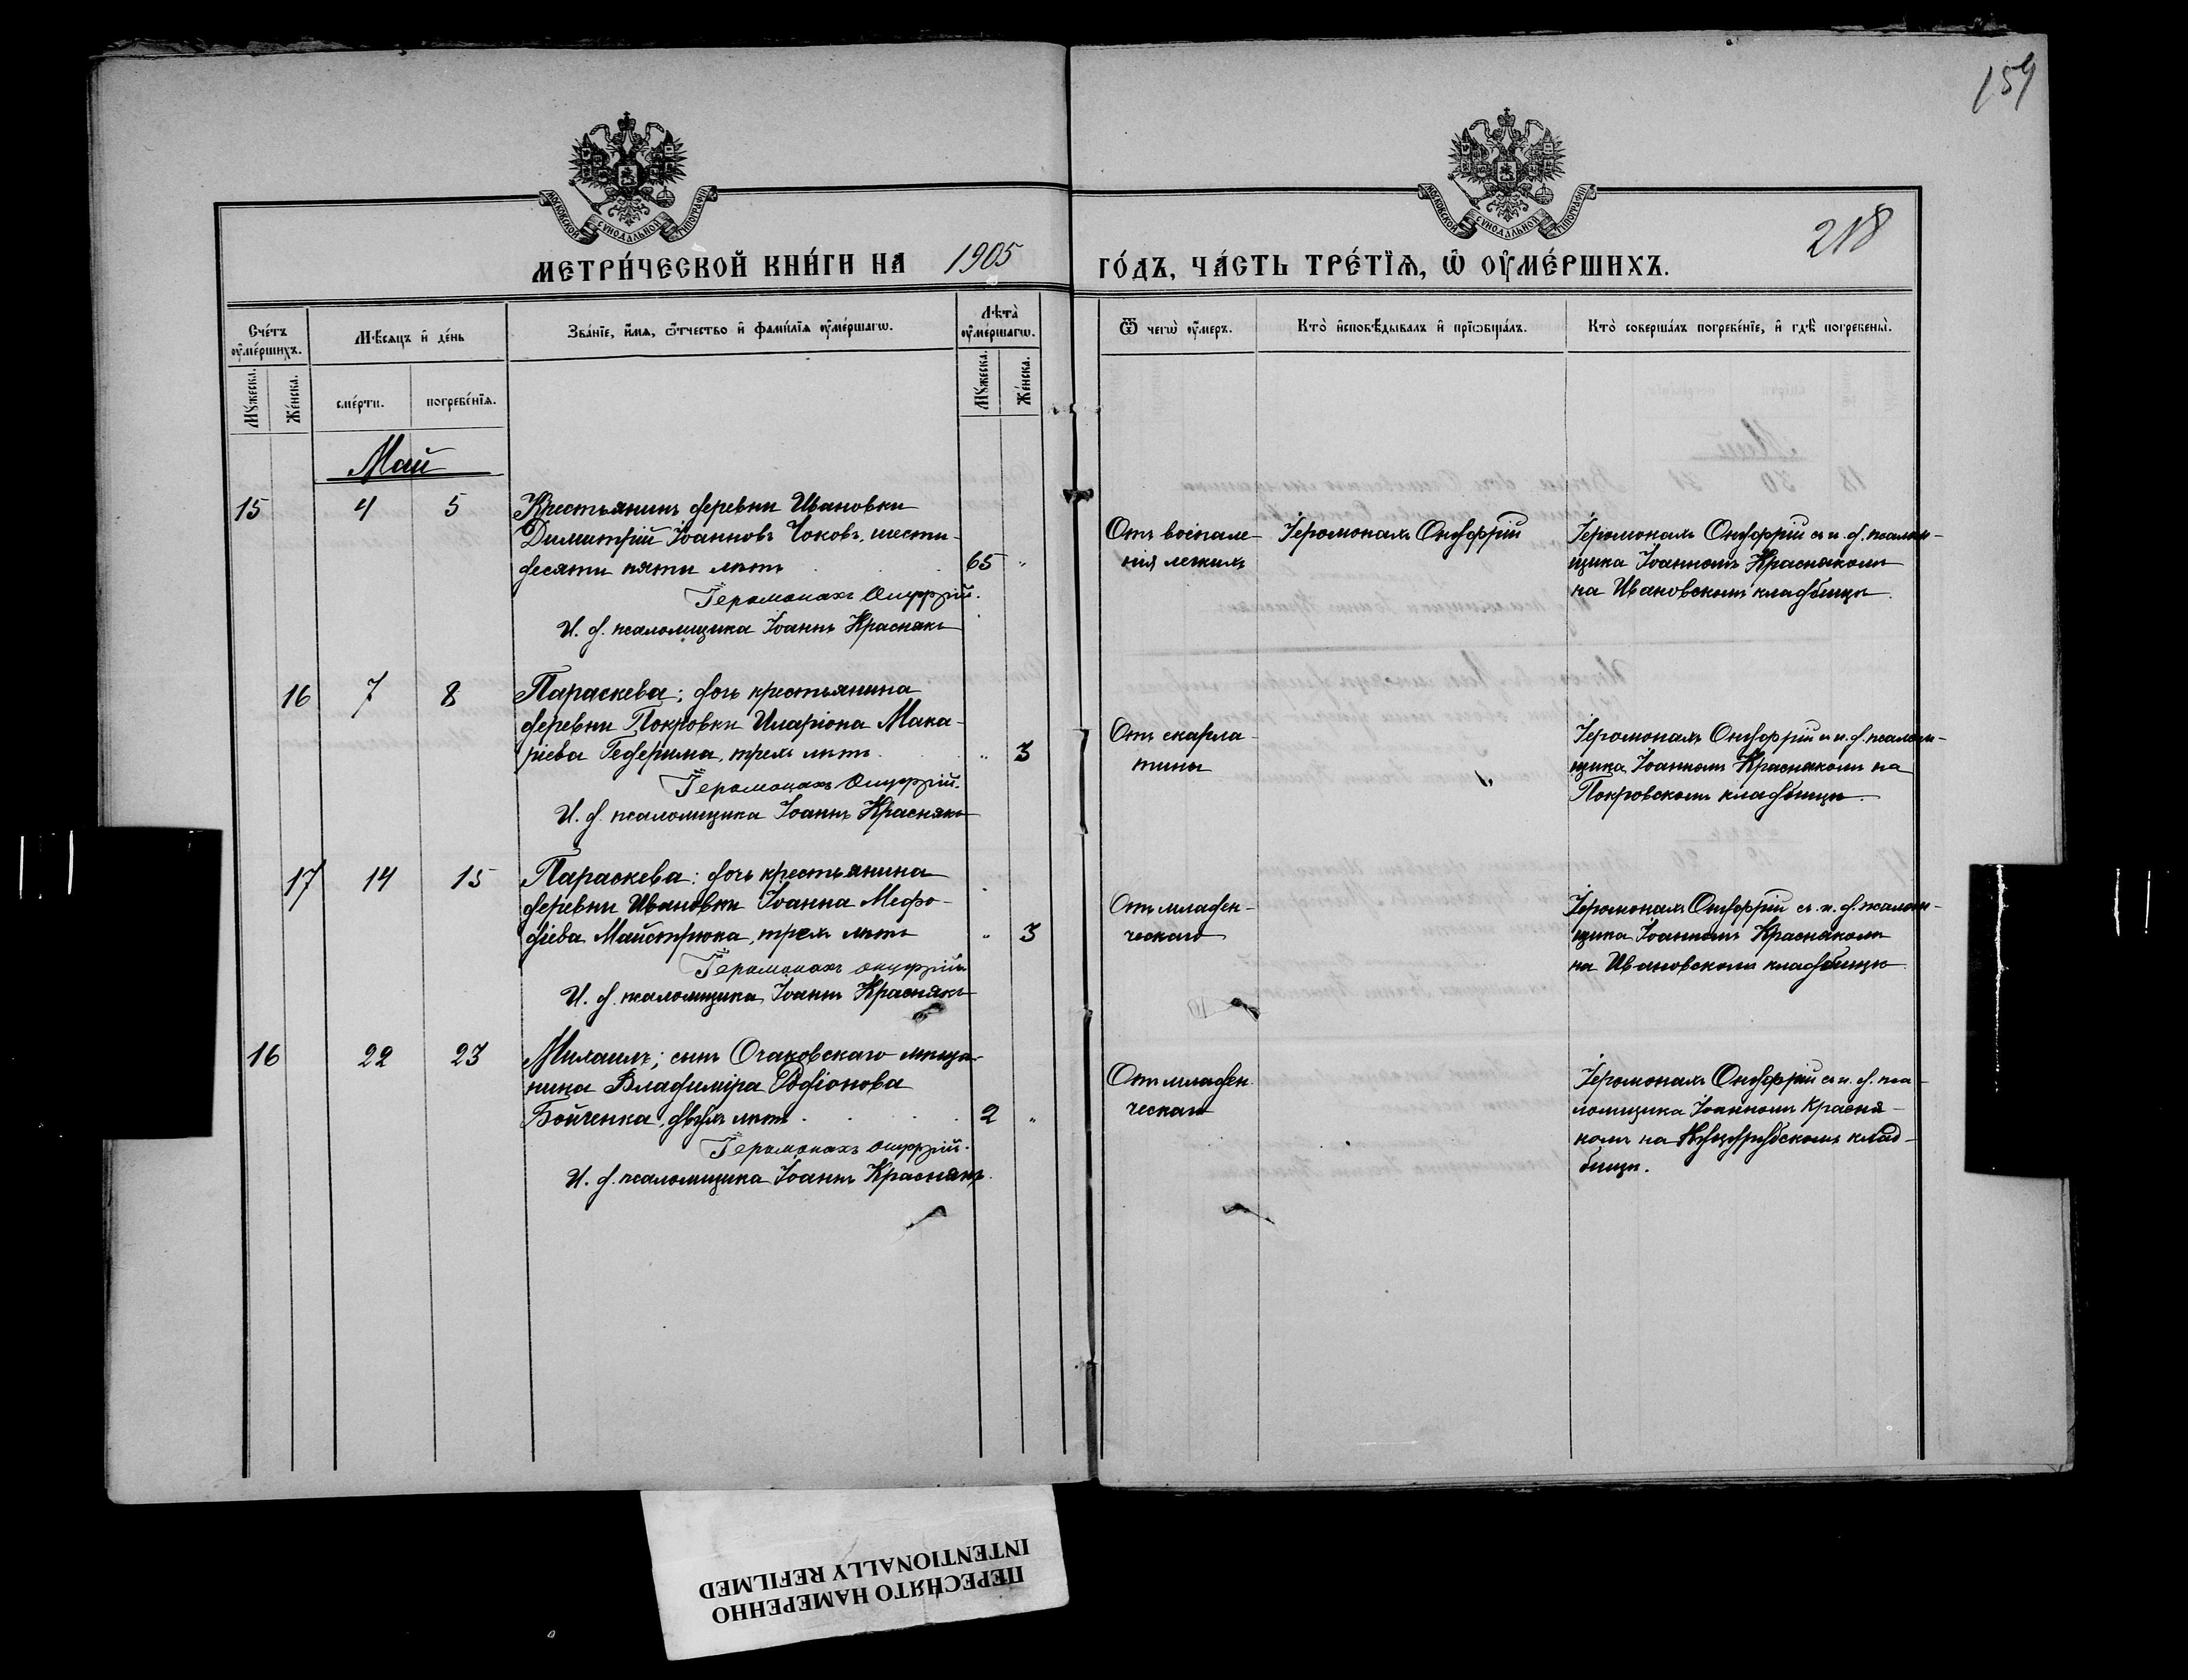 159
МОСКОВСКОЙ СУНОДАЛЬНОЙ ТИПОГРАФІИ
МОСКОВСКОЙ СУНОДАЛЬНОЙ ТИПОГРАФІИ
218
МЕТРИ́ЧЕСКОЙ КНИ́ГИ НА 1905
ГО́ДЪ, ЧА́СТЬ ТРЕ́ТЇѦ, Ѡ҆ ОУ҆МЕ́РШИХЪ.
Сче́тъ оу҆ме́ршихъ.
Мѣсяцъ и҆ де́нь
Зва́нїе, и҆́мѧ, ѻ҆́тчество и҆ фами́лїѧ оу҆ме́ршагѡ.
Лѣта̀ оу҆ме́ршагѡ.
Ѿ чегѡ̀ оу҆́меръ.
Кто̀ и҆сповѣ́дывалъ и҆ прїѡбща́лъ.
Кто̀ соверша́лъ погребе́нїе, и҆ гдѣ̀ погребены̀.
Мꙋ́жеска.
Же́нска.
сме́рти.
погребе́нїѧ.
Мꙋ́жеска.
Же́нска.
Май
15 4 5 Крестьянинъ деревни Ивановки
Димитрій Іоанновъ Чоковъ, шести-
десяти пяти лѣтъ 65 "
Іеромонахъ Онуфрій.
И. д. псаломщика Іоаннъ Краснякъ
Отъ воспале-
нія легкихъ
Іеромонахъ Онуфрій
Іеромонахъ Онуфрій съ и. д. псалом-
щика Іоанномъ Краснякомъ
на Ивановскомъ кладбищѣ.
16 7 8 Параскева; дочь крестьянина
деревни Покровки Иларіона Мака-
ріева Гедерима, трехъ лѣтъ. " 3
Іеромонахъ Онуфрій.
И. д. псаломщика Іоаннъ Краснякъ
Отъ скарла-
тины
Іеромонахъ Онуфрій съ и. д. псалом-
щика Іоанномъ Краснякомъ на
Покровскомъ кладбищѣ.
17 14 15 Параскева: дочь крестьянина
деревни Ивановки Іоанна Мефо-
діева Майстрюка, трехъ лѣтъ " 3
Іеромонахъ Онуфрій
И. д. псаломщика Іоаннъ Краснякъ
Отъ младен-
ческаго
Іеромонахъ Онуфрій съ и. д. псалом-
щика Іоанномъ Краснякомъ
на Ивановскомъ кладбищѣ
16 22 23 Михаилъ; сынъ Очаковскаго мѣща-
нина Владиміра Родіонова
Бойченка, двухъ лѣтъ 2 "
Іеромонахъ Онуфрій.
И. д. псаломщика Іоаннъ Краснякъ.
Отъ младен
ческаго
Іеромонахъ Онуфрій съ и. д. пса-
ломщика Іоанномъ Красня-
комъ на клад-
бищѣ.
ПЕРЕСНЯТО НАМЕРЕННО
INTENTIONALLY REFILMED